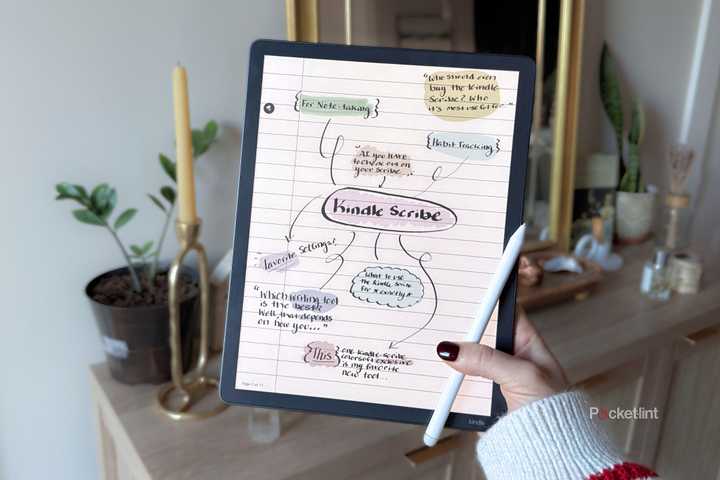 {For Note-taking}
"Who should even
buy the Kindle
Scribe? Who
it's most useful for..."
{Habit Tracking}
"All you have
to check out on
your Scribe..."
Kindle Scribe
Favorite Settings?
What to use
the Kindle Scribe
for exactly?
"Which writing tool
is the best?
Well, that depends
on how you..."
{This} one Kindle Scribe
Colorsoft exclusive
is my favorite
new tool...
Page 11 of 11
kindle
Pocketlint